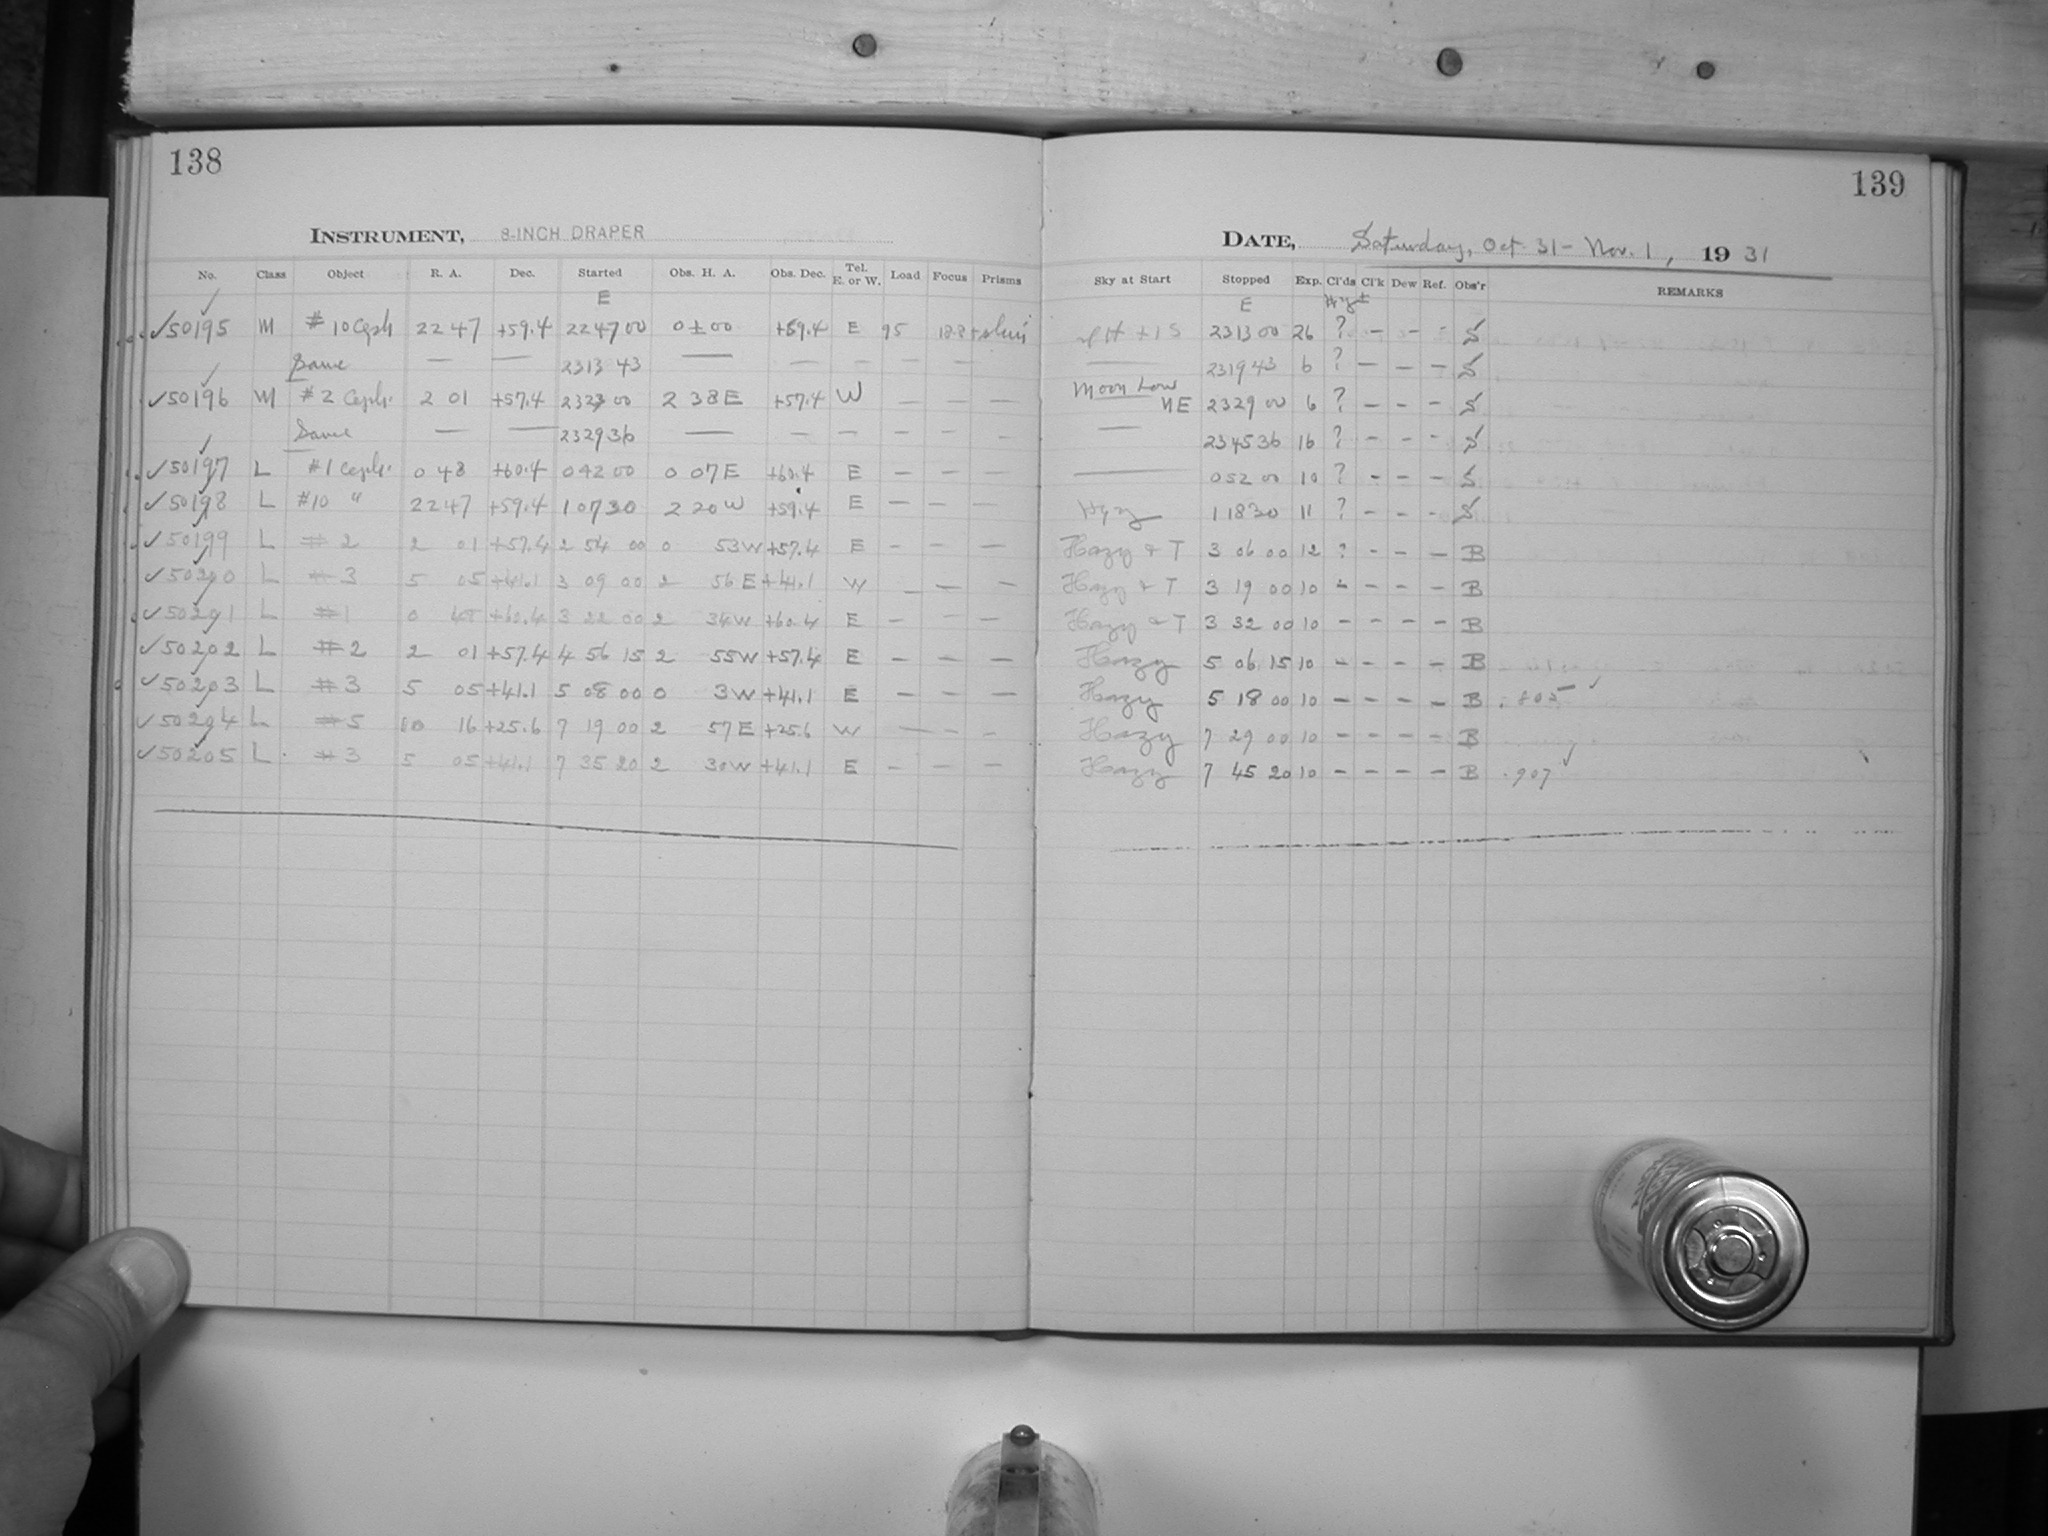 138
139
INSTRUMENT, 8-INCH DRAPER
DATE, Saturday, Oct 31 - Nov. 1, 19 31
No. Class Object R. A. Dec. Started Obs. H. A. Obs. Dec. Tel. E. or W. Load Focus Prisms Sky at Start Stopped Exp. Cl'ds Cl'k Dew Ref. Obs'r REMARKS
E E
✓50195 M # 10 Ceph 22 47 +59.4 22 47 00 0 ± 00 +59.4 E 95 23 13 00 26 ? - - - S
Same — — 23 13 43 — — — — — — 23 19 43 6 ? - - - S
✓50196 M #2 Ceph. 2 01 +57.4 23 23 00 2 38 E +57.4 W — — — Moon Low NE 23 29 00 6 ? - - - S
Same — — 23 29 36 — — — — — — — 23 45 36 16 ? - - - S
✓50197 L #1 Ceph. 0 48 +60.4 0 42 00 0 07 E +60.4 E — — — — 0 52 00 10 ? - - - S
✓50198 L #10 " 22 47 +59.4 1 07 30 2 20 W +59.4 E — — — Hazy 1 18 30 11 ? - - - S
✓50199 L #2 2 01 +57.4 2 54 00 0 53 W +57.4 E — — — Hazy & T 3 06 00 12 ? - - - B
✓50200 L #3 5 05 +41.1 3 09 00 2 56 E +41.1 W — — — Hazy & T 3 19 00 10 - - - - B
✓50201 L #1 0 48 +60.4 3 22 00 2 34 W +60.4 E — — — Hazy & T 3 32 00 10 - - - - B
✓50202 L #2 2 01 +57.4 4 56 15 2 55 W +57.4 E — — — Hazy 5 06 15 10 - - - - B
✓50203 L #3 5 05 +41.1 5 08 00 0 3 W +41.1 E — — — Hazy 5 18 00 10 - - - - B .805 ✓
✓50204 L #5 10 16 +25.6 7 19 00 2 57 E +25.6 W — — — Hazy 7 29 00 10 - - - - B
✓50205 L #3 5 05 +41.1 7 35 20 2 30 W +41.1 E — — — Hazy 7 45 20 10 - - - - B .907 ✓